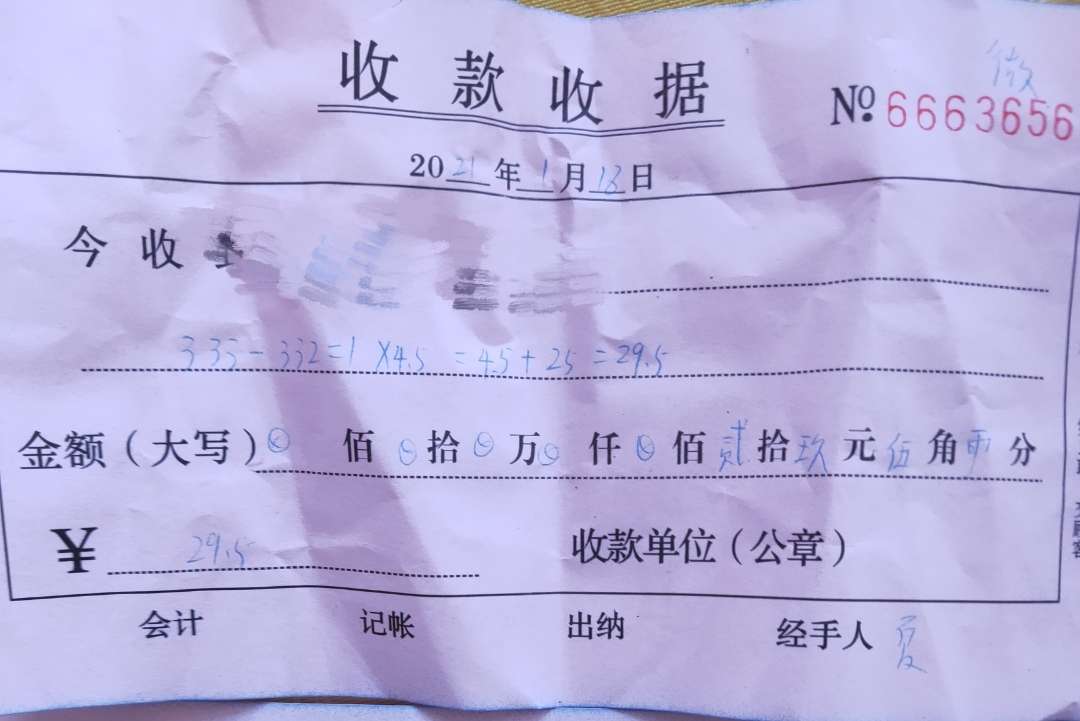 微
收款收据
№ 6663656
2021年1月18日
今收
335-332=1×4.5=4.5+25=29.5
金额(大写)⊗佰⊗拾⊗万⊗仟⊗佰贰拾玖元伍角零分
¥ 29.5 收款单位(公章)
会计 记帐 出纳 经手人 夏